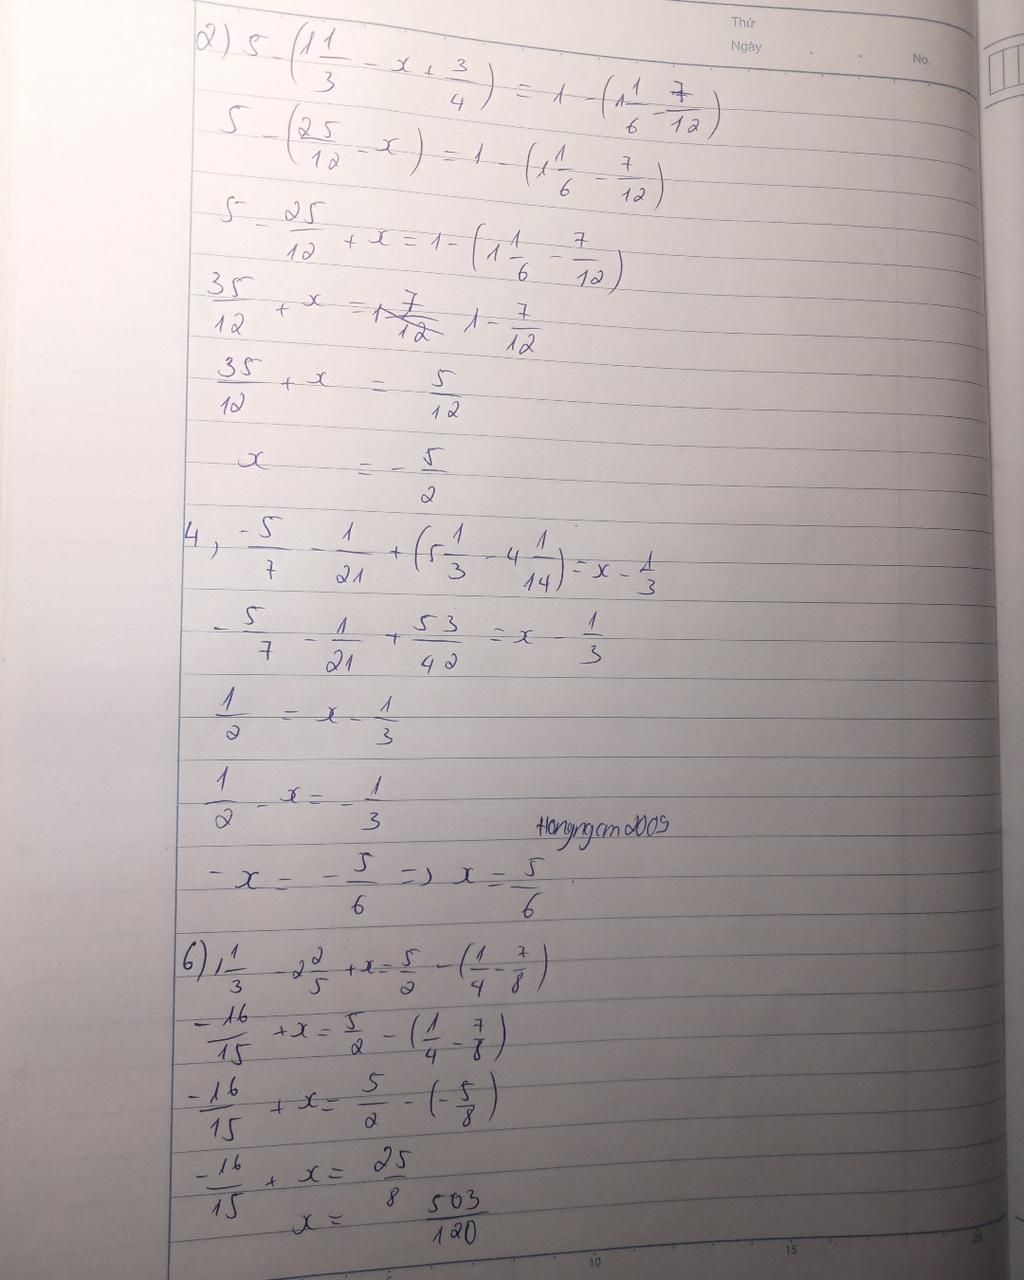 Thứ
Ngày . . No.
2) 5 - (1 1/3 - x + 3/4) = 1 - (1 1/6 - 7/12)
5 - (25/12 - x) = 1 - (1 1/6 - 7/12)
5 - 25/12 + x = 1 - (1 1/6 - 7/12)
35/12 + x = 1 - 7/12
35/12 + x = 5/12
x = - 5/2
4, -5/7 - 1/21 + (5 1/3 - 4 1/14) = x - 1/3
- 5/7 - 1/21 + 53/42 = x - 1/3
1/2 = x - 1/3
1/2 - x = - 1/3
Hongngcm2009
- x = - 5/6 => x = 5/6
6) 1 1/3 - 2 2/5 + x = 5/2 - (1/4 - 7/8)
-16/15 + x = 5/2 - (1/4 - 7/8)
-16/15 + x = 5/2 - (-5/8)
-16/15 + x = 25/8
x = 503/120
10 15 20